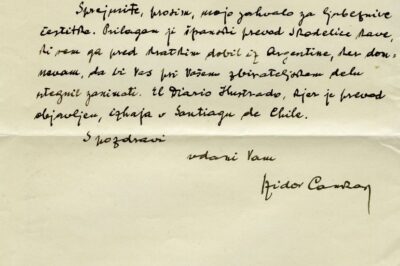 Sprejmite, prosim, mojo zahvalo za ljubeznive
čestitke. Prilagam ji španski prevod Skodelice kave,
ki sem ga pred kratkim dobil iz Argentine, ker dom-
nevam, da bi Vas pri Vašem zbirateljskem delu
utegnil zanimati. El Diario Ilustrado, kjer je prevod
objavljen, izhaja v Santiagu de Chile.
S pozdravi
vdani Vam
Izidor Cankar